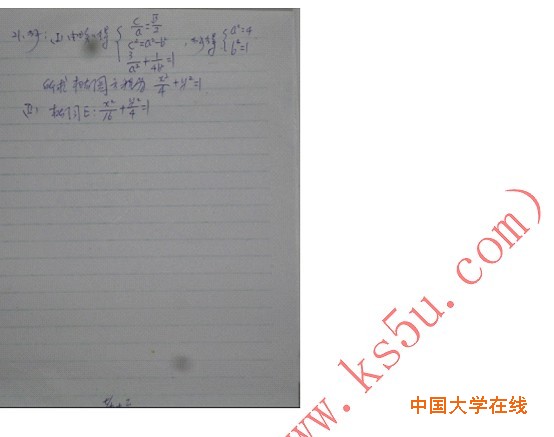 21. 解: (I) 由题意得 { c/a=√3/2
c²=a²-b²
3/a²+1/4b²=1 , 解得 { a²=4
b²=1
所求椭圆方程为 x²/4+y²=1
(II) 椭圆E: x²/16+y²/4=1
www.ks5u.com)
中国大学在线